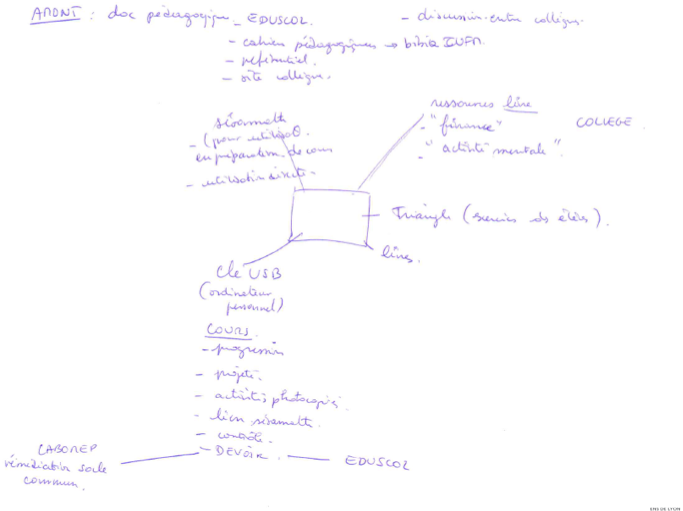 AMONT : doc pédagogique _ EDUSCOL. - discussion entre collègues.
- cahiers pédagogiques → biblio IUFM.
- référentiel.
- site collègue.
sésamath
- (pour utilisat°
en préparation de cours
- utilisation directe.
ressources livre
- "finance"
- "activité mentale".
COLLEGE
Triangle (exercices des élèves).
livres.
clé USB
(ordinateur
personnel)
COURS.
- progression
- projeté.
- activités photocopiées.
- lien sésamath.
- contrôle.
- DEVOIR.
EDUSCOL
LABOREP
rémédiation socle
commun.
ENS DE LYON